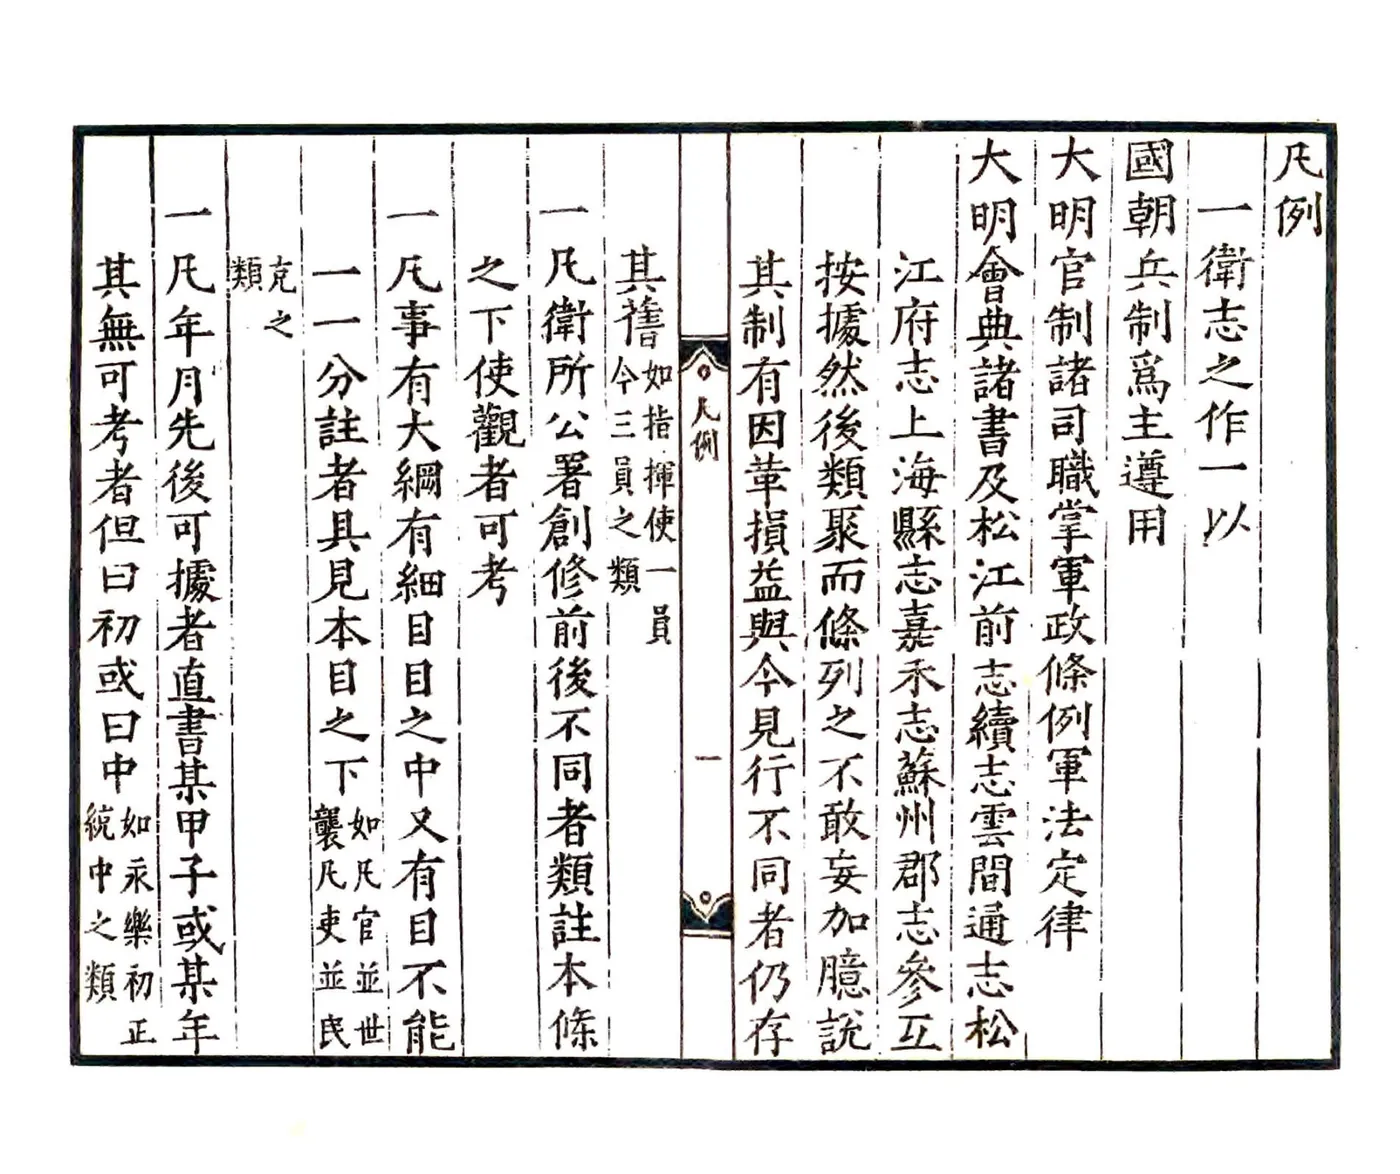 凡例
一衛志之作一以
國朝兵制爲主遵用
大明官制諸司職掌軍政條例軍法定律
大明會典諸書及松江前志續志雲間通志松
江府志上海縣志嘉禾志蘇州郡志參互
按據然後類聚而條列之不敢妄加臆說
其制有因革損益與今見行不同者仍存
凡例
一
其舊如指揮使一員
今三員之類
一凡衛所公署創修前後不同者類註本條
之下使觀者可考
一凡事有大綱有細目目之中又有目不能
一一分註者具見本目之下如凡官並世
襲凡吏並民
充之
類
一凡年月先後可據者直書某甲子或某年
其無可考者但曰初或曰中如永樂初正
統中之類